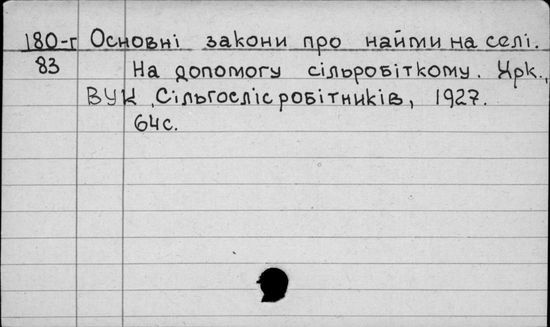 180-г Основні закони про найми на селі.
83 На допомогу сільробіткому. Хрк.,
ВУК „Сільгоспісробітників, 1927.
64с.